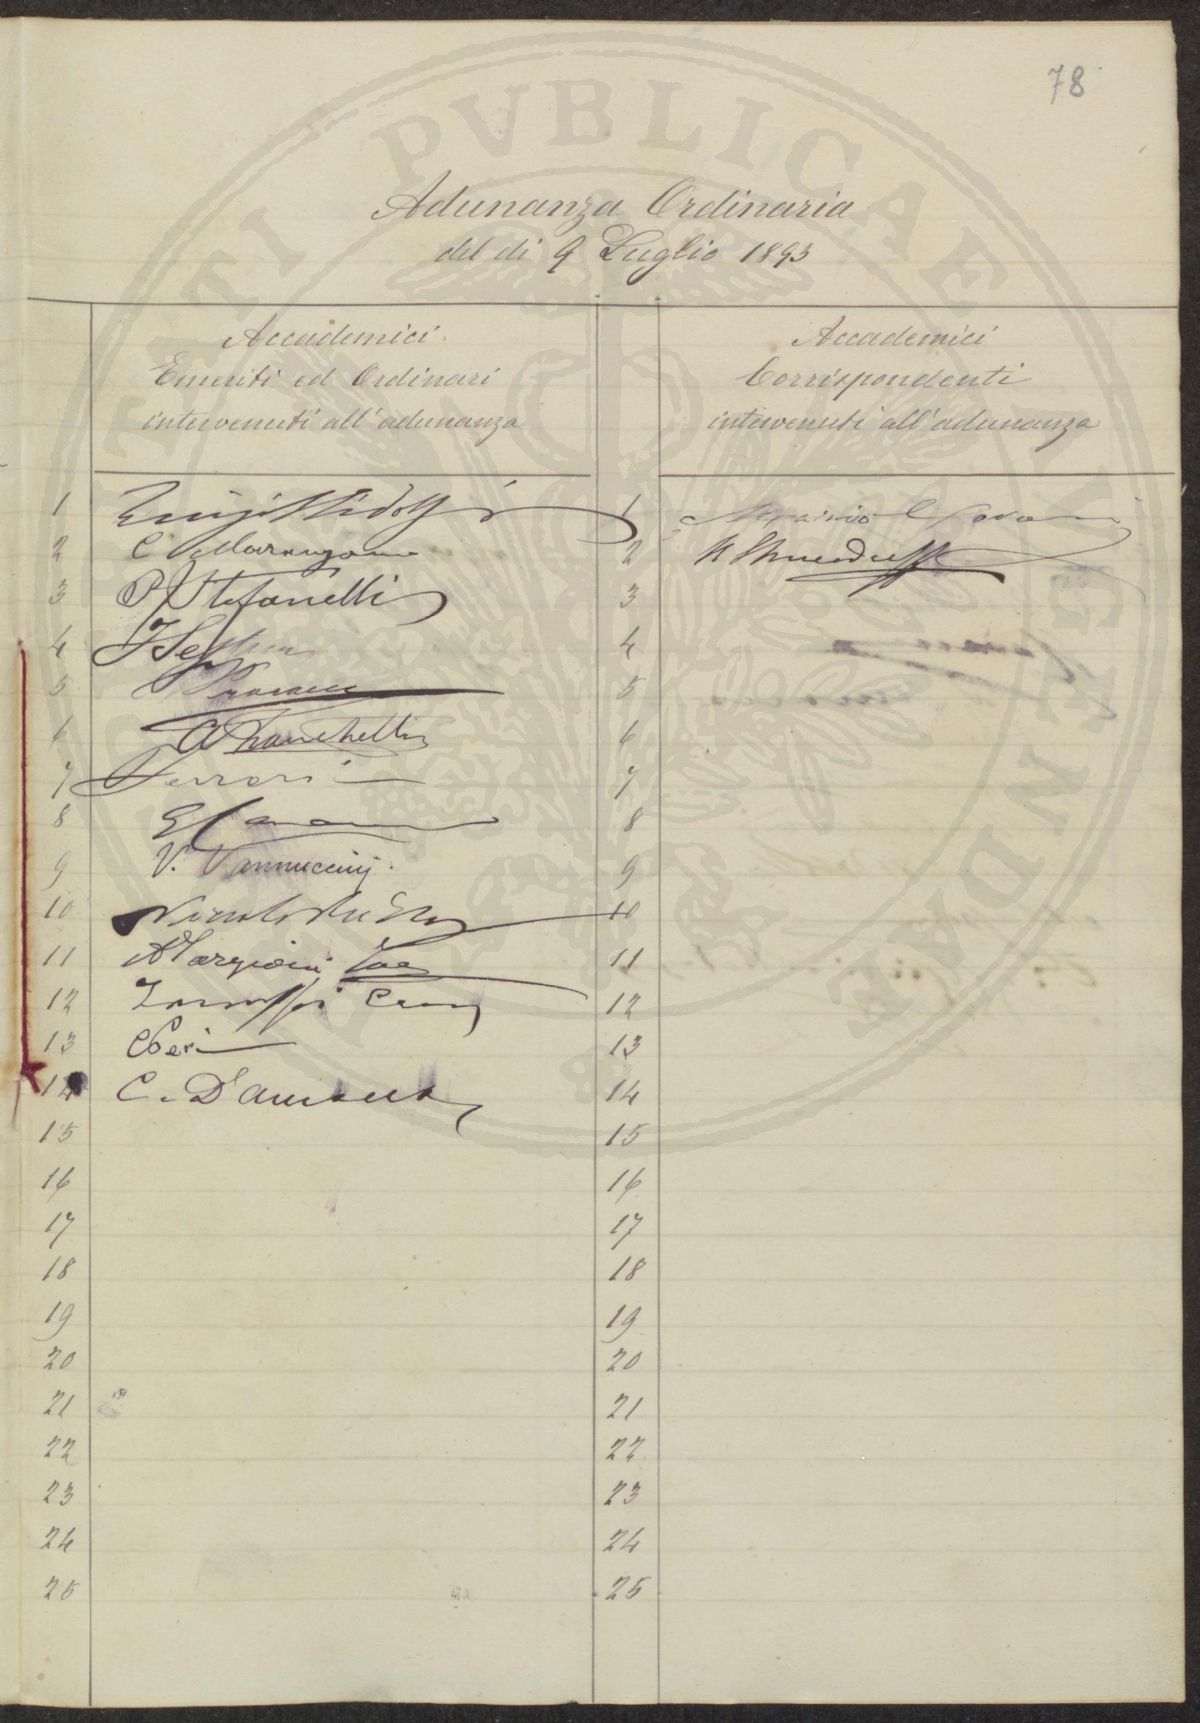 78
PVBLICAE
Adunanza Ordinaria
del dì 9 Luglio 1893
Accademici
Emeriti ed Ordinari
intervenuti all'adunanza
Accademici
Corrispondenti
intervenuti all'adunanza
1 Luigi Ridolfi
2 C. Marangoni
3 P. Stefanelli
4
5
6 A Franchetti
7 Ferrari
8
9 V. Vannuccinj.
10
11 A Targioni Toz
12
13 Peri
14 C. D'Ancona
15
16
17
18
19
20
21
22
23
24
25
1
2
3
4
5
6
7
8
9
10
11
12
13
14
15
16
17
18
19
20
21
22
23
24
25